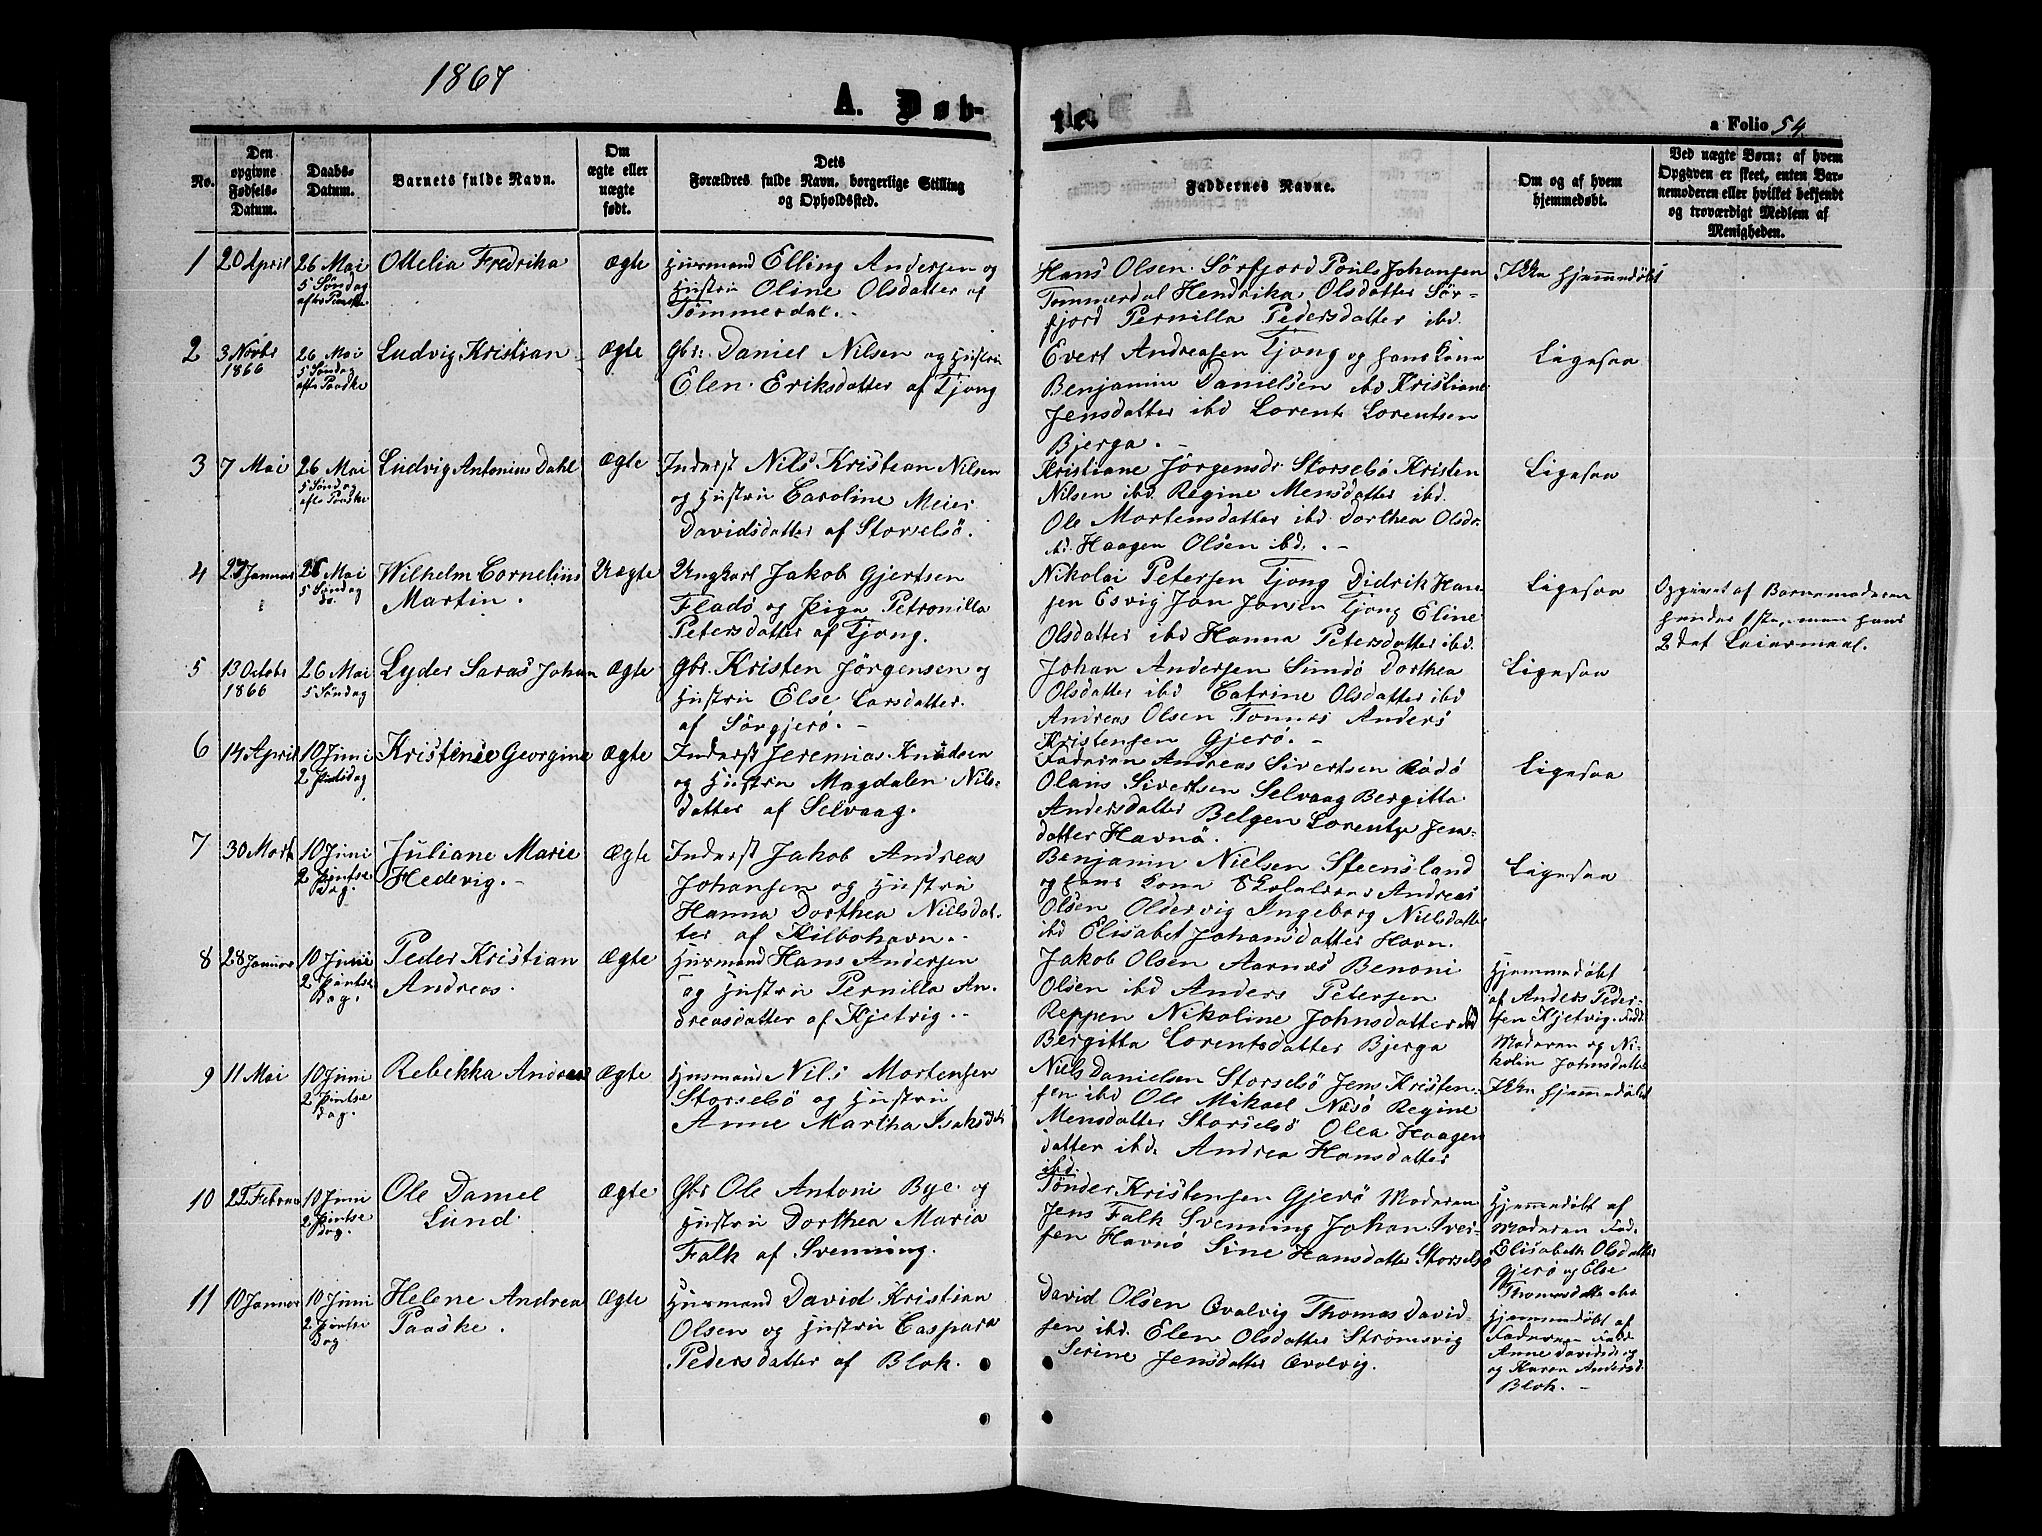 1867
A. Døb-
te.
a Folio 54.
No.
Den
opgivne
Fødsels-
Datum.
Daabs-
Datum.
Barnets fulde Navn.
Om
ægte eller
uægte
født.
Dets
Forældres fulde Navn, borgerlige Stilling
og Opholdssted.
Faddernes Navne.
Om og af hvem
hjemmedøbt.
Ved uægte Børn: af hvem
Opgaven er skeet, enten Bar-
nemoderen eller hvilket bekjendt
og troværdigt Medlem af
Menigheden.
1
20 April
26 Mai
5 Søndag
efter Paaske
Ottelia Fredrika
Ægte
Huusmand Elling Andersen og
Hustru Oline Olsdatter af
Tømmerdal.
Hans Olsen Sørfjord Pouls Johansen
Tommerdal Hendrika Olsdatter Sør-
fjord Pernilla Pedersdatter ibd.
Ikke hjemmedøbt
2
3 Novbr
1866
26 Mai
5 Søndag
efter Paaske
Ludvig Kristian
Ægte
Gbr. Daniel Nilsen og Hustru
Elen Eriksdatter af Tjong
Evert Andreasen Tjong og hans Kone
Benjamin Danielsen ibd Kristiane
Jensdatter ibd Lorents Lorentsen
Bjerga.
Ligesaa
3
7 Mai
26 Mai
5 Søndag
efter Paaske
Ludvig Antonius Dahl
Ægte
Inderst Nils Kristian Nilsen
og Hustru Caroline Meier
Davidsdatter af Storselsö.
Kristiane Jörgensdr Storselsö Kristen
Nilsen ibd. Regine Mensdatter ibd.
Ole Mortensdatter ibd. Dorthea Olsdr
ibd. Haagen Olsen ibd.
Ligesaa
4
27 Januar
26 Mai
5 Søndag
do.
Wilhelm Cornelius
Martin.
Uægte
Ungkarl Jakob Gjertsen
Fladö og Pige Petronilla
Petersdatter af Tjong.
Nikolai Petersen Tjong Didrik Han-
sen Esvig Jon Jonsen Tjong Eline
Olsdatter ibd Hanna Petersdatter ibd.
Ligesaa
Opgivet af Barnemoderen
hendes 1ste, men hans
2det Leiermaal.
5
13 Octobr
1866
26 Mai
5 Søndag
Lyder Saras Johan
Ægte
Gbr. Kristen Jörgensen og
Hustru Else Larsdatter
af Sörgjerö.
Johan Andersen Sundö Dorthea
Olsdatter ibd Catrine Olsdatter ibd
Andreas Olsen Tonnes Anders
Kristensen Gjerö.
Ligesaa
6
14 April
10 Juni
2 Pintsdag
Kristense Georgine
Ægte
Inderst Jeremias Knudsen
og Hustru Magdalen Nils-
datter af Selvaag.
Faderen Andreas Sivertsen Rödö
Olaus Sivertsen Selvaag Bergitta
Andersdatter Belgen Lorentze Jens-
datter Havnö.
Ligesaa
7
30 Marts
10 Juni
2 Pintse
Dag.
Juliane Marie
Hedevig.
Ægte
Inderst Jakob Andrea
Johansen og Hustru
Hanna Dorthea Nielsdat-
ter af Kilbohavn.
Benjamin Nielsen Steensland
og hans Kone Skolelærer Andreas
Olsen Oldervig Ingeborg Nielsdatter
ibd Elisabet Johansdatter Havn.
Ligesaa
8
28 Januar
10 Juni
2 Pintse
Dag.
Peder Kristian
Andreas.
Ægte
Huusmand Hans Andersen
og Hustru Pernilla An-
dreasdatter af Kjetvig.
Jakob Olsen Aarnæs Benoni
Olsen ibd Anders Petersen
Reppen Nikoline Johnsdatter ibd
Bergitta Lorentsdatter Bjerga
Hjemmedøbt
af Anders Peder-
sen Kjetvig. Fadd.
Moderen og Ni-
kolin Johnsdatter
9
11 Mai
10 Juni
2 Pintse
Dag.
Rebekka Andrea
Ægte
Husmand Nils Mortensen
Storselsö og Hustru
Anne Martha Isaksdtr
Niels Danielsen Storselsö Jens Kristen-
sen ibd Ole Mikael Næsö Regine
Mensdatter Storselsö Olea Haagen
datter ibd. Andrea Hansdatter
ibd.
Ikke hjemmedøbt
10
Februar
10 Juni
2 Pintse
Dag.
Ole Daniel
Lund
Ægte
Gbr Ole Antoni Bye og
Hustru Dorthea Maria
Falk af Svenning.
Tönder Kristensen Gjerö Moderen
Jens Falk Svenning Johan Iver-
sen Havnö Sine Hansdatter Storselsö
Hjemmedøbt af
Moderen Fad.
Elisabeth Olsdatter
Gjerö og Else
Thomasdatter ibd
11
10 Januar
10 Juni
2 Pintse
Dag
Helene Andrea
Paaske.
Ægte
Huusmand David Kristian
Olsen og Hustru Caspara
Pedersdatter af Blok.
David Olsen Qvalvig Thomas David-
sen ibd. Elen Olsdatter Strömsvig
Serine Jensdatter Qvalvig.
Hjemmedøbt af
Faderen Fadd.
Anne Davidsd og
og Karen Andersd.
Blok.